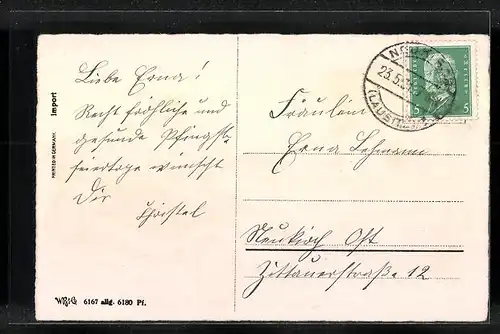 Liebe Erna!
Recht fröhliche und
gesunde Pfingst-
feiertage wünscht
Dir
Christel
PRINTED IN GERMANY. Import
W.St.G. 6167 allg. 6180 Pf.
23.5.
(LAUSITZ)
5 5
Fräulein
Erna Lehmann
Neukirch Ost
Zittauerstraße 12